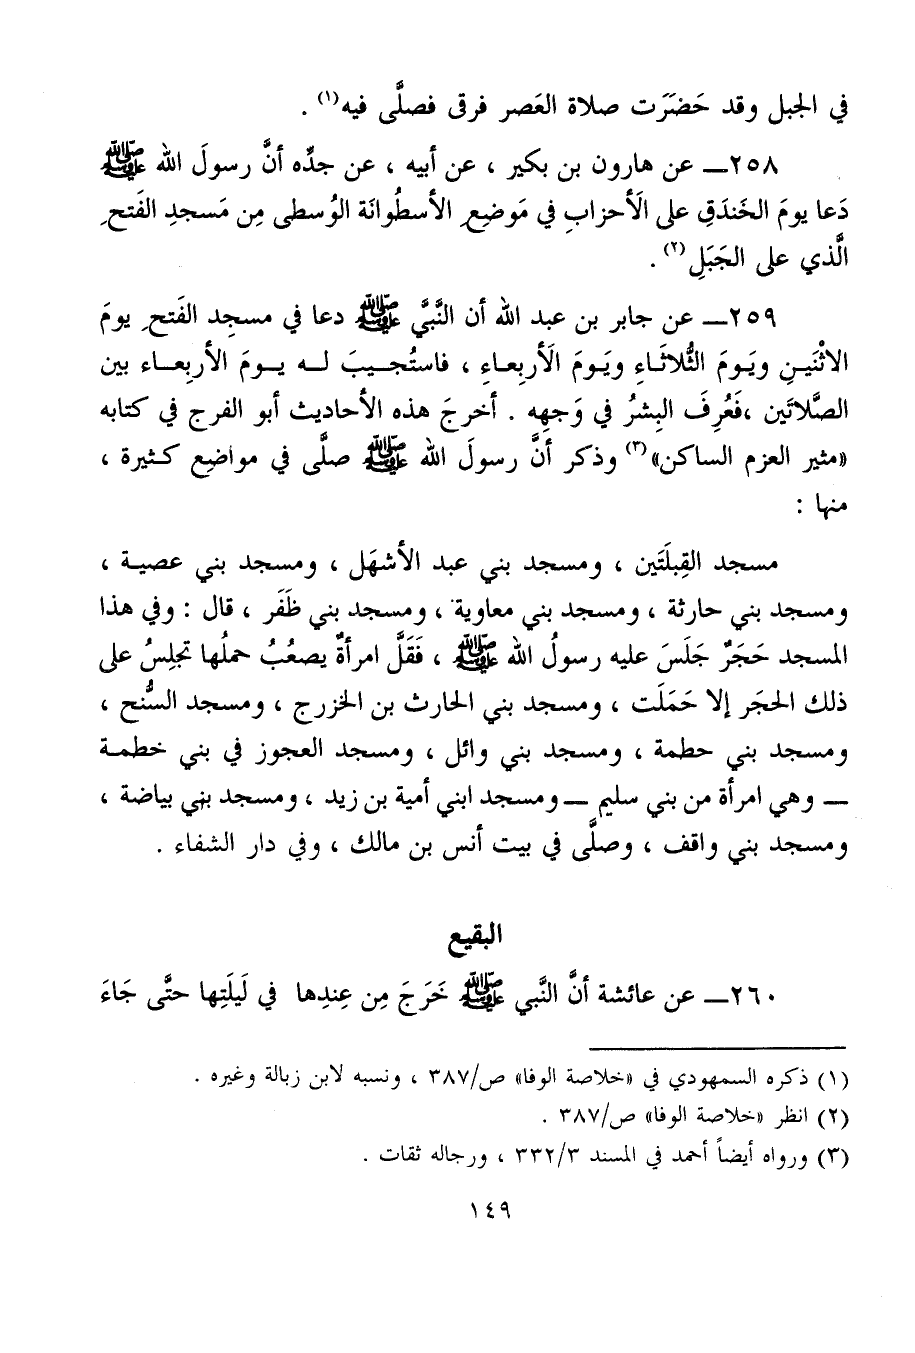 في الجبل وقد حَضَرَت صلاة العَصر فرقى فصلَّى فيه(١) .
٢٥٨ــ عن هارون بن بكير ، عن أبيه ، عن جدِّه أنَّ رسولَ الله ﷺ
دَعا يومَ الخَندَقِ على الَأحزابِ في مَوضِعِ الأسطُوانَة الوُسطى مِن مَسجدِ الفَتحِ
الَّذي على الجَبَلِ(٢) .
٢٥٩ــ عن جابر بن عبد الله أن النَّبيَّ ﷺ دعا في مسجِد الفَتحِ يومَ
الاثْنَينِ ويَـومَ الثُّلاثَـاءِ ويَـومَ الَأربِعـاءِ ، فاستُجـيبَ لـه يـومَ الأربِعـاء بين
الصَّلاتَين ،فَعُرِفَ البِشرُ في وَجهِه . أخرجَ هذه الأحاديث أبو الفرج في كتابه
«مثير العزم الساكن»(٣) وذكر أنَّ رسولَ الله ﷺ صلَّى في مواضع كثيرة ،
منها :
مسجد القِبلَتَين ، ومسجد بني عبد الأشهَل ، ومسجد بني عصيـة ،
ومسجد بني حارثة ، ومسجد بني معاوية ، ومسجد بني ظَفَر ، قال : وفي هذا
المسجد حَجَرٌ جَلَسَ عليه رسولُ الله ﷺ ، فَقَلَّ امرأةٌ يصعُبُ حملُها تجلِسُ على
ذلك الحجَر إلا حَمَلَت ، ومسجد بني الحارث بن الخزرج ، ومسجد السُّنح ،
ومسجد بني حطمة ، ومسجد بني وائل ، ومسجد العجوز في بني خطمـة
ــ وهي امرأة من بني سليم ــ ومسجد ابني أمية بن زيد ، ومسجد بني بياضة ،
ومسجد بني واقف ، وصلَّى في بيت أنس بن مالك ، وفي دار الشفاء .
البقيع
٢٦٠ــ عن عائشة أنَّ النَّبي ﷺ خَرَجَ مِن عِندِها في لَيلَتِها حتَّى جَاءَ
(١) ذكره السمهودي في «خلاصة الوفا» ص/٣٨٧ ، ونسبه لابن زبالة وغيره .
(٢) انظر «خلاصة الوفا» ص/٣٨٧ .
(٣) ورواه أيضاً أحمد في المسند ٣٣٢/٣ ، ورجاله ثقات .
١٤٩